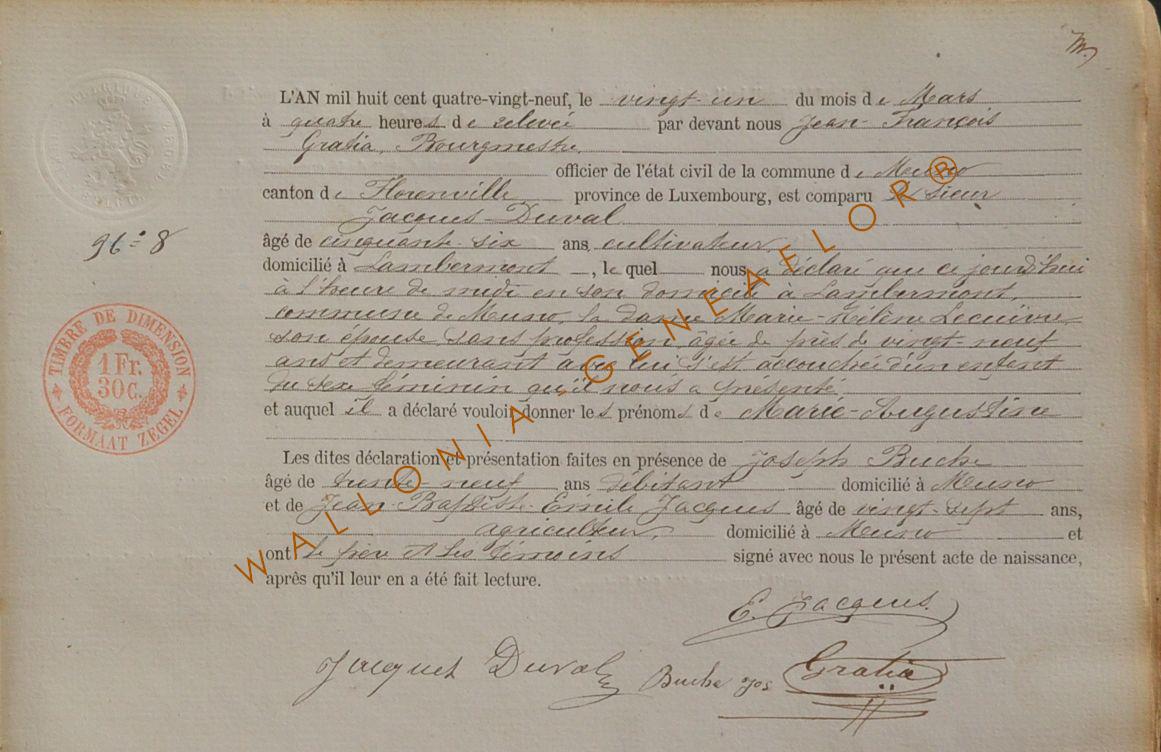 M
L'AN mil huit cent quatre-vingt-neuf, le vingt-un du mois de Mars
à quatre heures de relevée par devant nous Jean-François
Gratia, Bourgmestre
officier de l'état civil de la commune de Muno
canton de Florenville province de Luxembourg, est comparu le sieur
Jacques Duval
96=8
âgé de cinquante-six ans, cultivateur,
domicilié à Lambermont, lequel nous a déclaré que ce jourd'hui
à l'heure de midi en son domicile à Lambermont,
commune de Muno, la dame Marie-Hélène Lecuivre,
son épouse, sans profession, âgée de près de vingt-neuf
ans et demeurant avec lui, s'est accouchée d'un enfant
du sexe féminin qu'il nous a présenté
et auquel il a déclaré vouloir donner les prénoms de Marie-Augustine
TIMBRE DE DIMENSION
1 Fr.
30 C.
FORMAAT ZEGEL
Les dites déclaration et présentation faites en présence de Joseph Buche
âgé de trente-neuf ans débitant domicilié à Muno
et de Jean-Baptiste-Emile Jacques âgé de vingt-sept ans,
agriculteur, domicilié à Muno et
ont le père et les témoins signé avec nous le présent acte de naissance,
après qu'il leur en a été fait lecture.
E. Jacques.
Jacques Duval Buche Jos Gratia
WALLONIA-GENEAELOR®